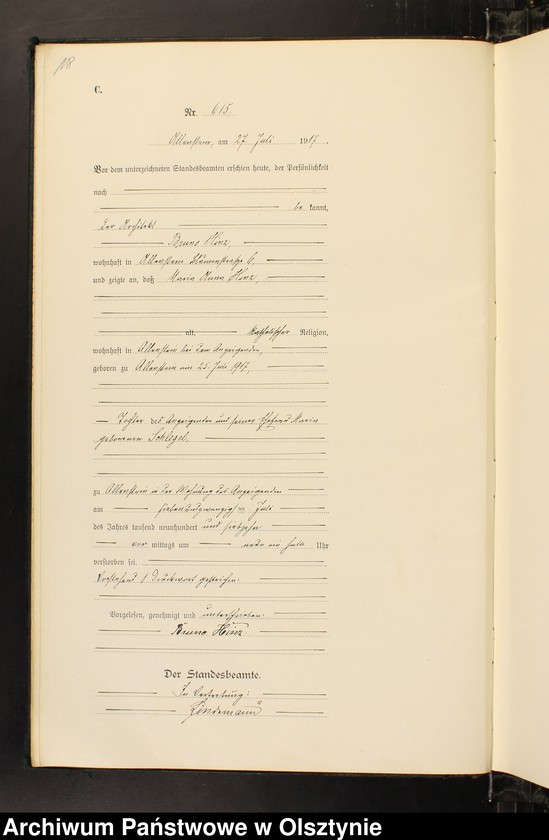 118
C.
Nr. 615.
Allenstein, am 27 Juli 1917.
Vor dem unterzeichneten Standesbeamten erschien heute, der Persönlichkeit
nach
be kannt,
der Architekt
Bruno Hinz,
wohnhaft in Allenstein Blumenstraße 6,
und zeigte an, daß Maria Anna Hinz,
alt, katholischer Religion,
wohnhaft in Allenstein bei dem Anzeigenden,
geboren zu Allenstein am 25. Juli 1917,
Tochter des Anzeigenden und seiner Ehefrau Maria
geborenen Schlegel,
zu Allenstein in der Wohnung des Anzeigenden
am siebenundzwanzigsten Juli
des Jahres tausend neunhundert und siebzehn
vor mittags um ein halb Uhr
verstorben sei.
Vorstehend 1 Druckwort gestrichen.
Vorgelesen, genehmigt und unterschrieben.
Bruno Hinz
Der Standesbeamte.
In Vertretung:
Lindemann
Archiwum Państwowe w Olsztynie